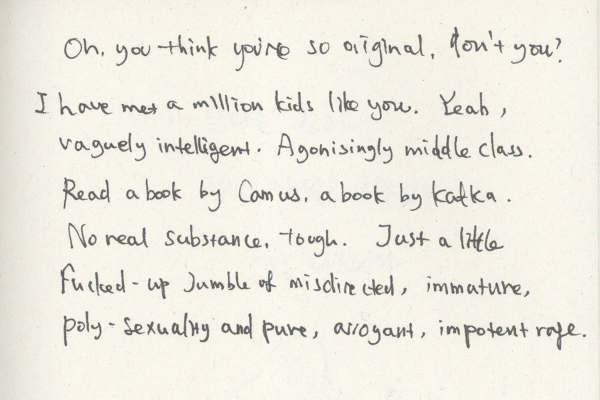 Oh, you think you're so original, don't you?
I have met a million kids like you. Yeah,
vaguely intelligent. Agonisingly middle class.
Read a book by Camus, a book by Kafka.
No real substance, tough. Just a little
fucked-up jumble of misdirected, immature,
poly-sexuality and pure, arrogant, impotent rage.